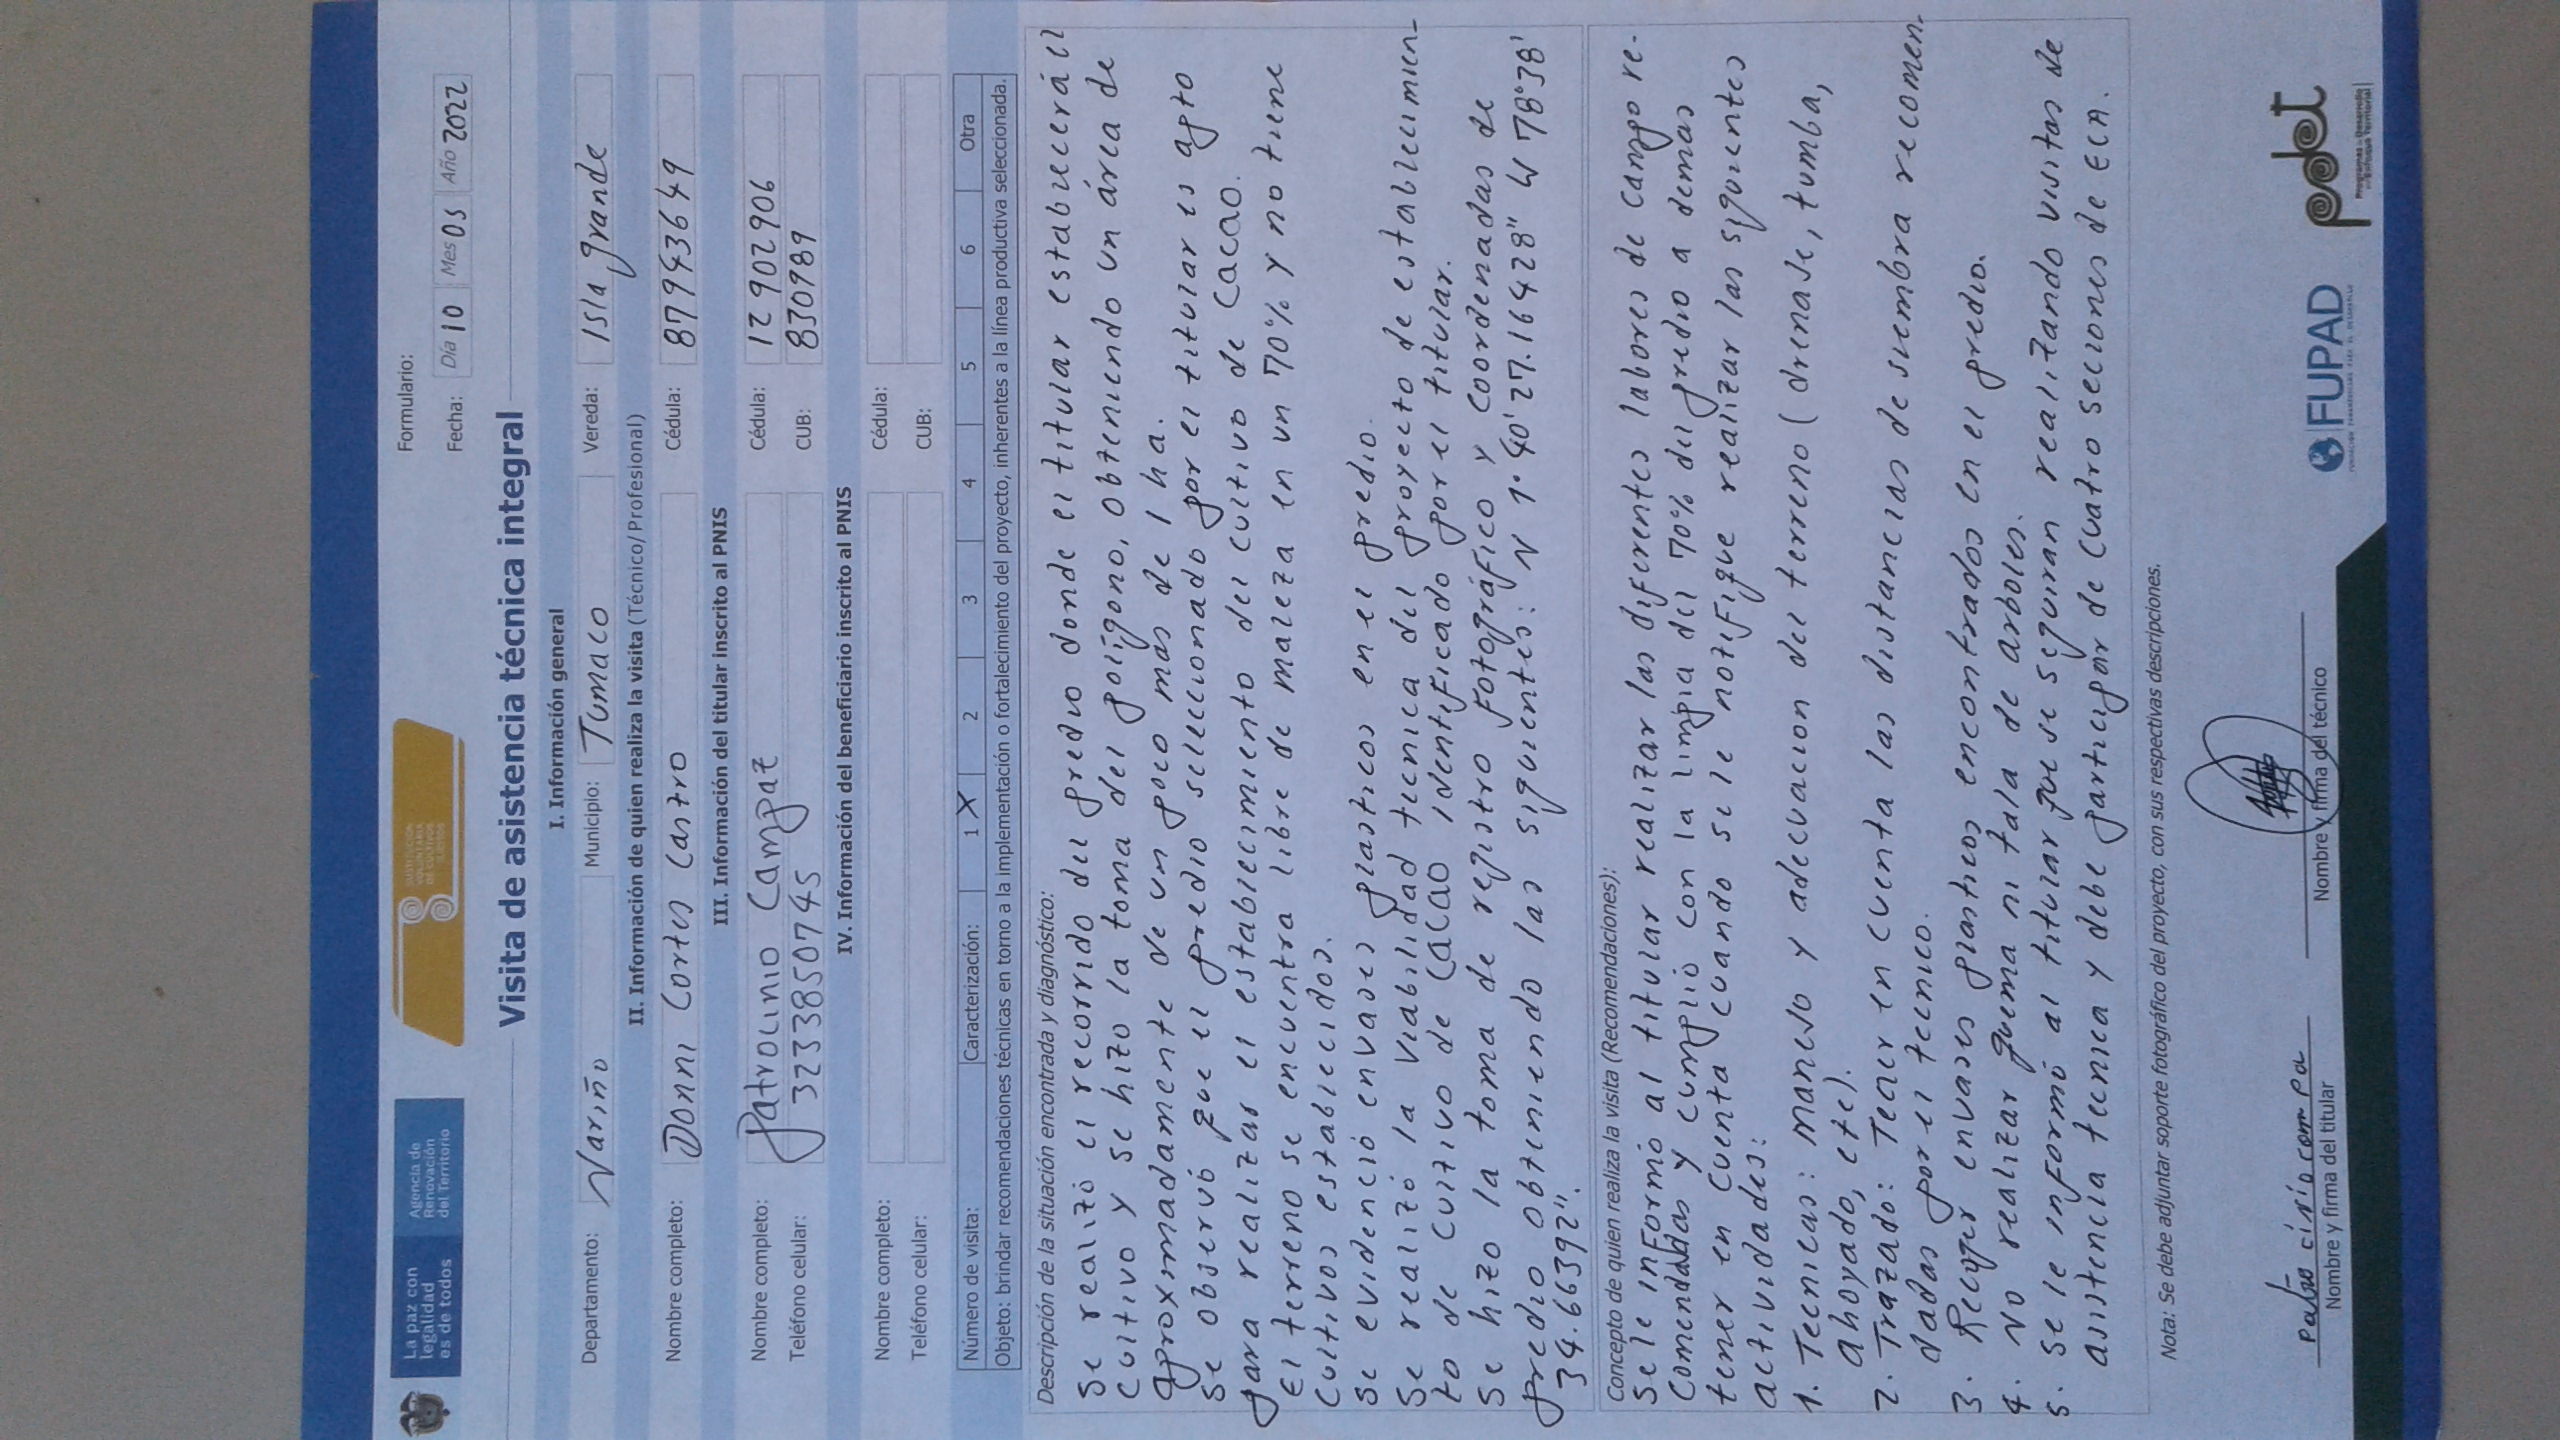 La paz con
legalidad
es de todos
Agencia de
Renovación
del Territorio
SUSTITUCIÓN
VOLUNTARIA
DE CULTIVOS
ILÍCITOS
Formulario:
Fecha: Día 10 Mes 05 Año 2022
Visita de asistencia técnica integral
I. Información general
Departamento: Nariño Municipio: Tumaco Vereda: Isla grande
II. Información de quien realiza la visita (Técnico/Profesional)
Nombre completo: Donni Cortes Castro Cédula: 87943649
III. Información del titular inscrito al PNIS
Nombre completo: Patrolinio Campaz Cédula: 12902906
Teléfono celular: 3233850745 CUB: 830989
IV. Información del beneficiario inscrito al PNIS
Nombre completo: Cédula:
Teléfono celular: CUB:
Número de visita: Caracterización: 1 X 2 3 4 5 6 Otra
Objeto: brindar recomendaciones técnicas en torno a la implementación o fortalecimiento del proyecto, inherentes a la línea productiva seleccionada.
Descripción de la situación encontrada y diagnóstico:
Se realizó el recorrido del predio donde el titular establecerá el
cultivo y se hizo la toma del polígono, obteniendo un área de
aproximadamente de un poco mas de 1 ha.
Se observó que el predio seleccionado por el titular es apto
para realizar el establecimiento del cultivo de Cacao.
El terreno se encuentra libre de maleza en un 70% y no tiene
cultivos establecidos.
Se evidenció envases plasticos en el predio.
Se realizó la viabilidad tecnica del proyecto de establecimien-
to de cultivo de Cacao identificado por el titular.
Se hizo la toma de registro fotográfico y coordenadas de
predio obteniendo las siguientes: N 1° 40' 27.16428" W 78°38'
34.66392".
Concepto de quien realiza la visita (Recomendaciones):
Se le informó al titular realizar las diferentes labores de campo re-
comendadas y cumplió con la limpia del 70% del predio a demas
tener en cuenta cuando se le notifique realizar las siguientes
actividades:
1. Tecnicas: manejo y adecuacion del terreno (drenaje, tumba,
ahoyado, etc).
2. Trazado: Tener en cuenta las distancias de siembra recomen-
dadas por el tecnico.
3. Recoger envases plasticos encontrados en el predio.
4. No realizar quema ni tala de arboles.
5. Se le informó al titular que se seguiran realizando visitas de
asistencia tecnica y debe participar de cuatro secciones de ECA.
Nota: Se debe adjuntar soporte fotográfico del proyecto, con sus respectivas descripciones.
Nombre y firma del titular
Nombre y firma del técnico
FUPAD
pdet
Programas de Desarrollo
con Enfoque Territorial